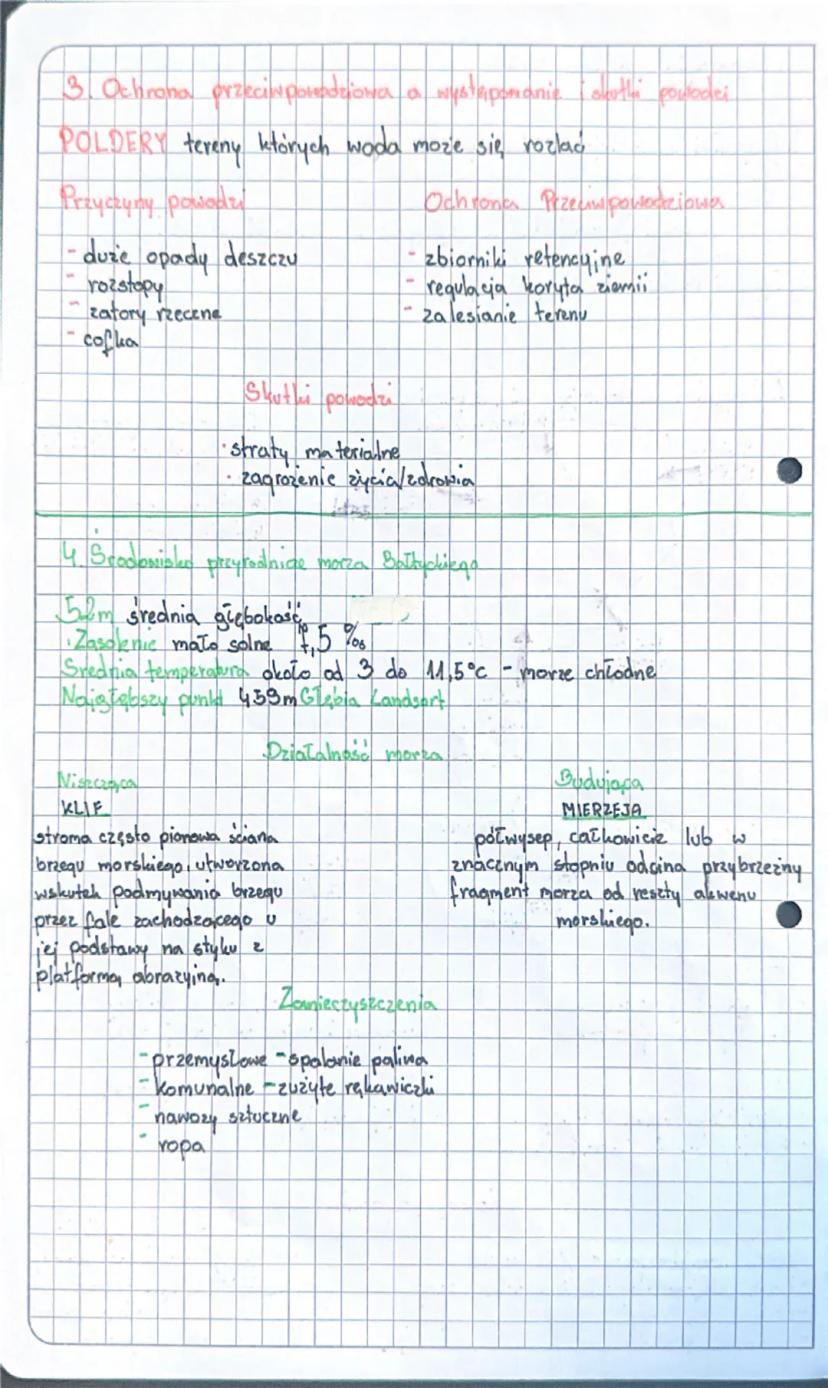 3. Ochrona przeciwpowodziowa a występowanie i skutki powodzi
POLDERY tereny których woda może się rozlać
Przyczyny powodzi
- duże opady deszczu
- rozstopy
- zatory rzeczne
- cofka
Ochrona Przeciwpowodziowa
- zbiorniki retencyjne
- regulacja koryta ziemii
- zalesianie terenu
Skutki powodzi
· straty materialne
· zagrożenie życia/zdrowia
4. Środowisko przyrodnicze morza Bałtyckiego
52m średnia głębokość
Zasolenie mało solne 7,5 ‰
Średnia temperatura około od 3 do 11,5°C - morze chłodne
Najgłębszy punkt 459m Głębia Landsort
Działalność morza
Niszcząca
KLIF
stroma często pionowa ściana
brzegu morskiego, utworzona
wskutek podmywania brzegu
przez fale zachodzącego u
jej podstawy na styku z
platformą abrazyjną.
Budująca
MIERZEJA
półwysep, całkowicie lub w
znacznym stopniu odcina przybrzeżny
fragment morza od reszty akwenu
morskiego.
Zanieczyszczenia
- przemysłowe - spalanie paliwa
- komunalne - zużyte rękawiczki
- nawozy sztuczne
- ropa